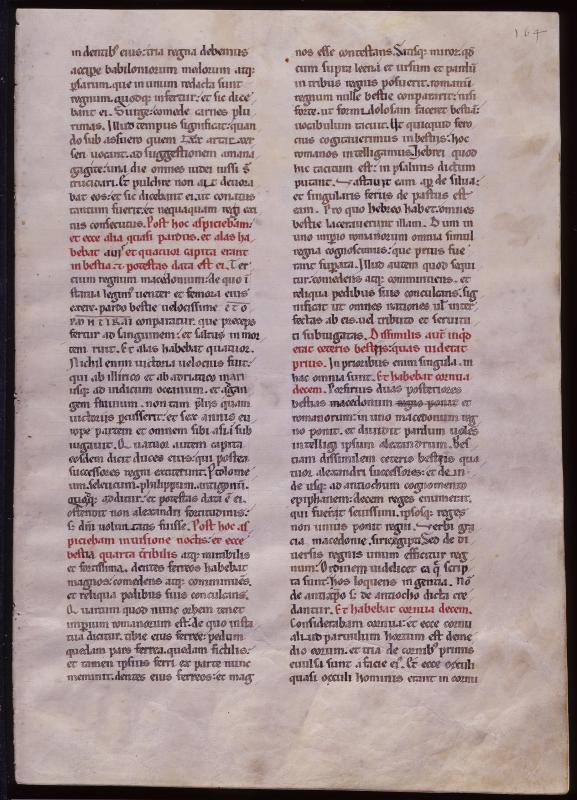 164
in dentib' eius: tria regna debemus
accipe babiloniorum medorum atq;
psarum. que in unum redacta sunt
regnum. quodq; infertur: et sic dice
bant ei. Surge: comede carnes plu
rimas. Illud tempus significat: quan
do sub asuero quem
seri uocant. ad suggestionem amana
gagite: una die omnes iudei iussi s̄
trucidari. Et pulchre non ait deuora
bat eos: et sic dicebant ei. ut conatus
tantum fuerit. et nequaquam regi
tus consecutus. Post hoc aspiciebam:
et ecce alia quasi pardus. et alas ha
bebat auis et quatuor capita erant
in bestia. et potestas data est ei. Ter
cium regnum macedonum: de quo i
statua legim' uenter et femora eius
erere. pardo bestie uelocissime
conparatur. que preceps
fertur ad sanguinem: et saltus in mor
tem ruit. Et alas habebat quatuor.
Nichil enim uictoria uelocius fuit:
qui ab illirico et ab adriatico mari
usq; ad indicum oceanum. et
gen fluuium. non tam pliis quam
uictoriis pcussit: et sex annis eu
rope partem et omnem sibi asia sub
iugauit. Quatuor autem capita
eosdem dicit duces eius: qui postea
successores regni extiterunt. Ptolome
um. seleucum. philippum. antigonū.
Quodq; additur: et potestas data ē ei.
ostendit non alexandri fortitudinis:
s; dni uoluntatis fuisse. Post hoc as
piciebam in uisione noctis: et ecce
bestia quarta tribilis atq; mirabilis
et fortissima. dentes ferreos habebat
magnos: comedens atq; comminuēs.
et reliqua pedibus suis conculcans.
Quartum quod nunc orbem tenet
impium romanorum est: de quo in sta
tua dicitur. tibie eius ferree: pedum
quedam pars ferrea. quedam fictilis:
et tamen ipsius ferri ex parte nunc
meminit. dentes eius ferreos: et mag
nos esse contestans. Satisq; miror. qd
cum supra leenā et ursum et pardū
in tribus regnis posuerit. romanū
regnum nulle bestie conparauit: nisi
forte. ut formidolosam faceret bestiā:
uocabulum tacuit. Ut quicquid fero
cius cogitauerimus in bestiis: hoc
romanos intelligamus. Hebrei quod
hic tacitum est: in psalmis dictum
putant. Vastauit eam apr de silua:
et singularis ferus de pastus est
eam. Pro quo hebreo habet. omnes
bestie lacerauerunt illam. Dum in
uno impio romanorum omnia simul
regna cognoscimus: que prius fue
rant sepata. Illud autem quod sequi
tur. comedens atq; comminuens. et
reliqua pedibus suis conculcans: sig
nificat ut omnes nationes ul inter
fectas ab eis. uel tributo et seruitu
ti subiugatas. Dissimilis autē
erat ceteris bestiis: quas uiderat
prius. In prioribus enim singula. in
hac omnia sunt. Et habebat cornua
decem. Porfirius duas posteriores
bestias macedonum regno ponat et
romanorum: in uno macedonum reg
no ponit. et diuidit pardum uolēs
intelligi ipsum alexandrum. Bes
tiam dissimilem ceteris bestiis qua
tuor alexandri successores: et de in
de usq; ad antiochum cognomento
epiphanem: decem reges enumerat.
qui fuerāt seuissimi. ipsosq; reges
non unius ponit regni. Verbi gra
cia macedonie. sirie. egipti. Sed de di
uersis regnis unum efficitur reg
num. Ordinem uidelicet ea q̄ scrip
ta sunt: hos loquens ingentia. Nō
de antiocho s; de antiocho dicta cre
dantur. Et habebat cornua decem.
Considerabam cornua: et ecce cornu
aliud paruulum hortum est deme
dio eorum. et tria de cornib' primis
euulsa sunt a facie ei'. Et ecce occuli
quasi occuli hominis erant in cornu